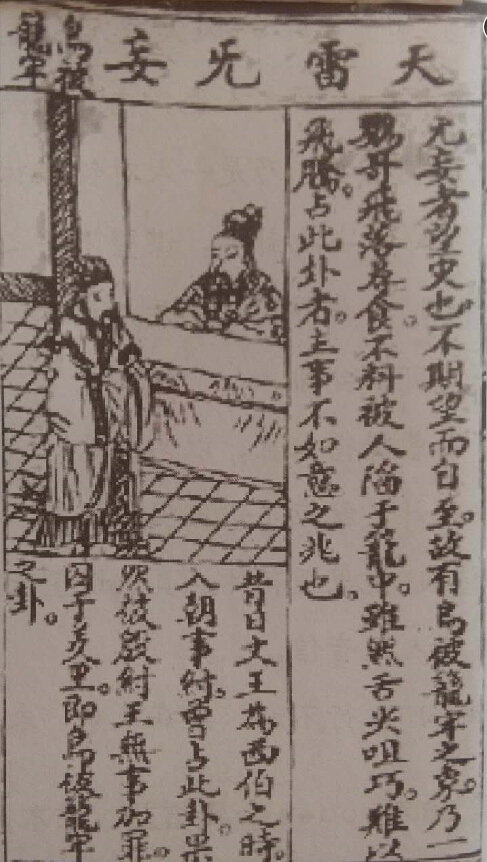 天雷无妄
鳥被
籠牢
无妄者望灾也。不期望而自至。故有鳥被籠牢之象。乃一
鸚哥飛落尋食。不料被人陷于籠中。雖然舌尖咀巧。難以
飛騰。占此卦者。主事不如意之兆也。
昔日文王為西伯之時。
入朝事紂。曾占此卦。果
然被殷紂王無事加罪。
囚于羑里。即鳥被籠牢
之卦。